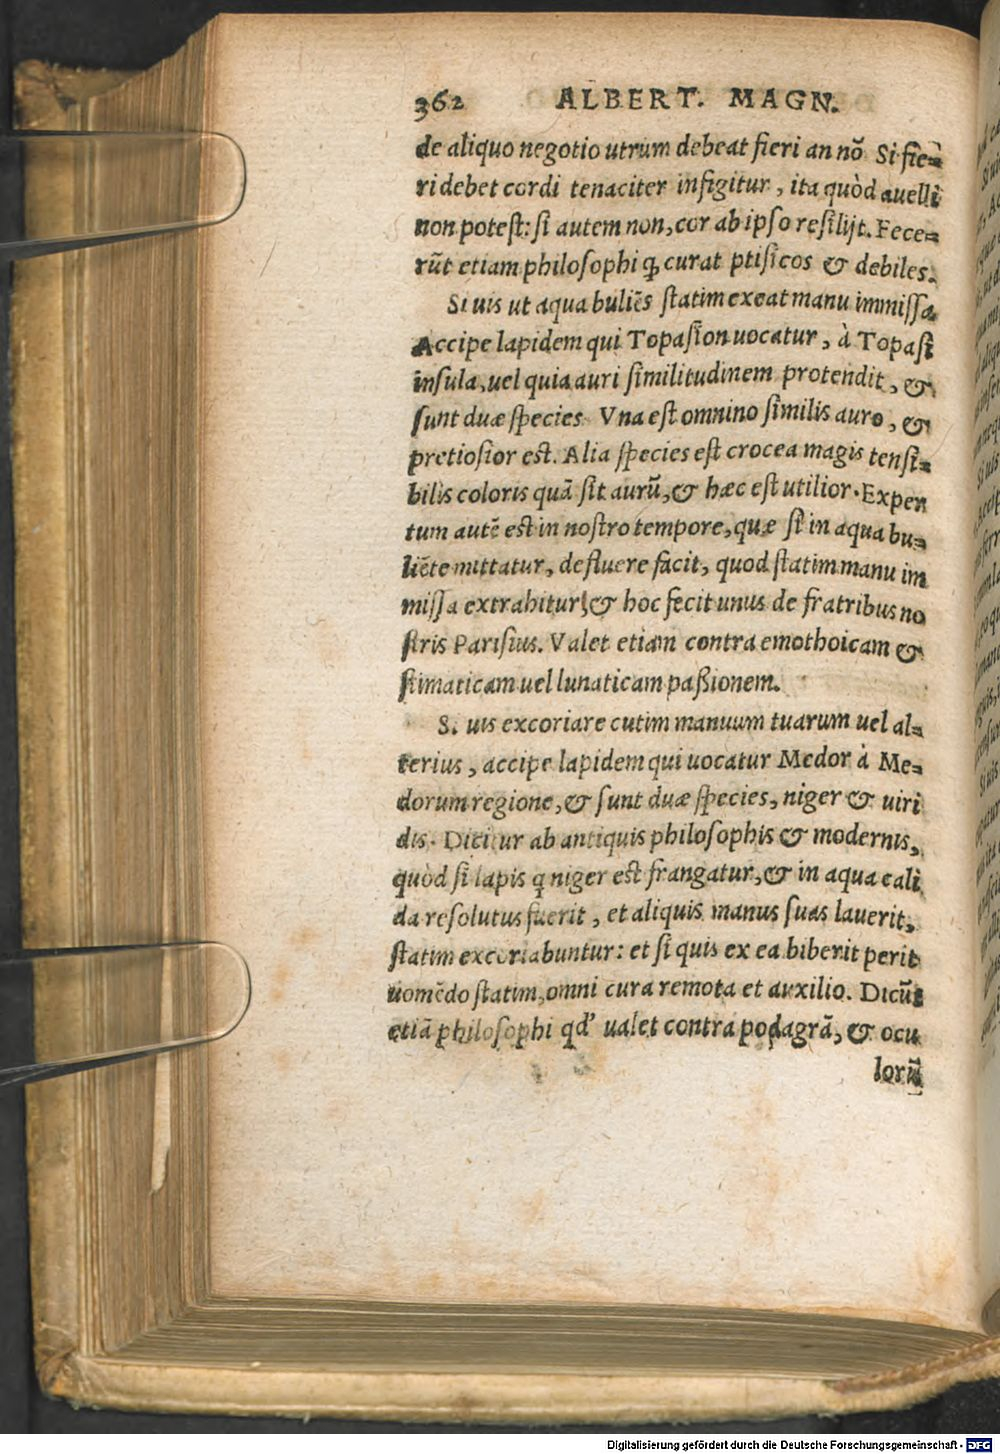 362 ALBERT. MAGN.
de aliquo negotio utrum debeat fieri an nō Si fie=
ri debet cordi tenaciter infigitur, ita quòd auelli
non potest: si autem non, cor ab ipso resilijt. Fece=
rūt etiam philosophi ꝙ curat ptisicos & debiles.
Si uis ut aqua buliēs statim exeat manu immissa
Accipe lapidem qui Topasion uocatur, à Topasi
insula, uel quia auri similitudinem protendit, &
sunt duæ species. Vna est omnino similis auro, &
pretiosior est. Alia species est crocea magis tensi=
bilis coloris quā sit aurū, & hæc est utilior. Exper
tum autē est in nostro tempore, quæ si in aqua bu=
liēte mittatur, defluere facit, quod statim manu im
missa extrahitur, & hoc fecit unus de fratribus no
stris Parisius. Valet etiam contra emothoicam &
stimaticam uel lunaticam paßionem.
S. uis excoriare cutim manuum tuarum uel al=
terius, accipe lapidem qui uocatur Medor à Me=
dorum regione, & sunt duæ species, niger & uiri
dis. Dicitur ab antiquis philosophis & modernis,
quòd si lapis q niger est frangatur, & in aqua cali
da resolutus fuerit, et aliquis manus suas lauerit,
statim excoriabuntur: et si quis ex ea biberit perit
uomēdo statim, omni cura remota et auxilio. Dicūt
etiā philosophi qd' ualet contra podagrā, & ocu
lorū
Digitalisierung gefördert durch die Deutsche Forschungsgemeinschaft - DFG